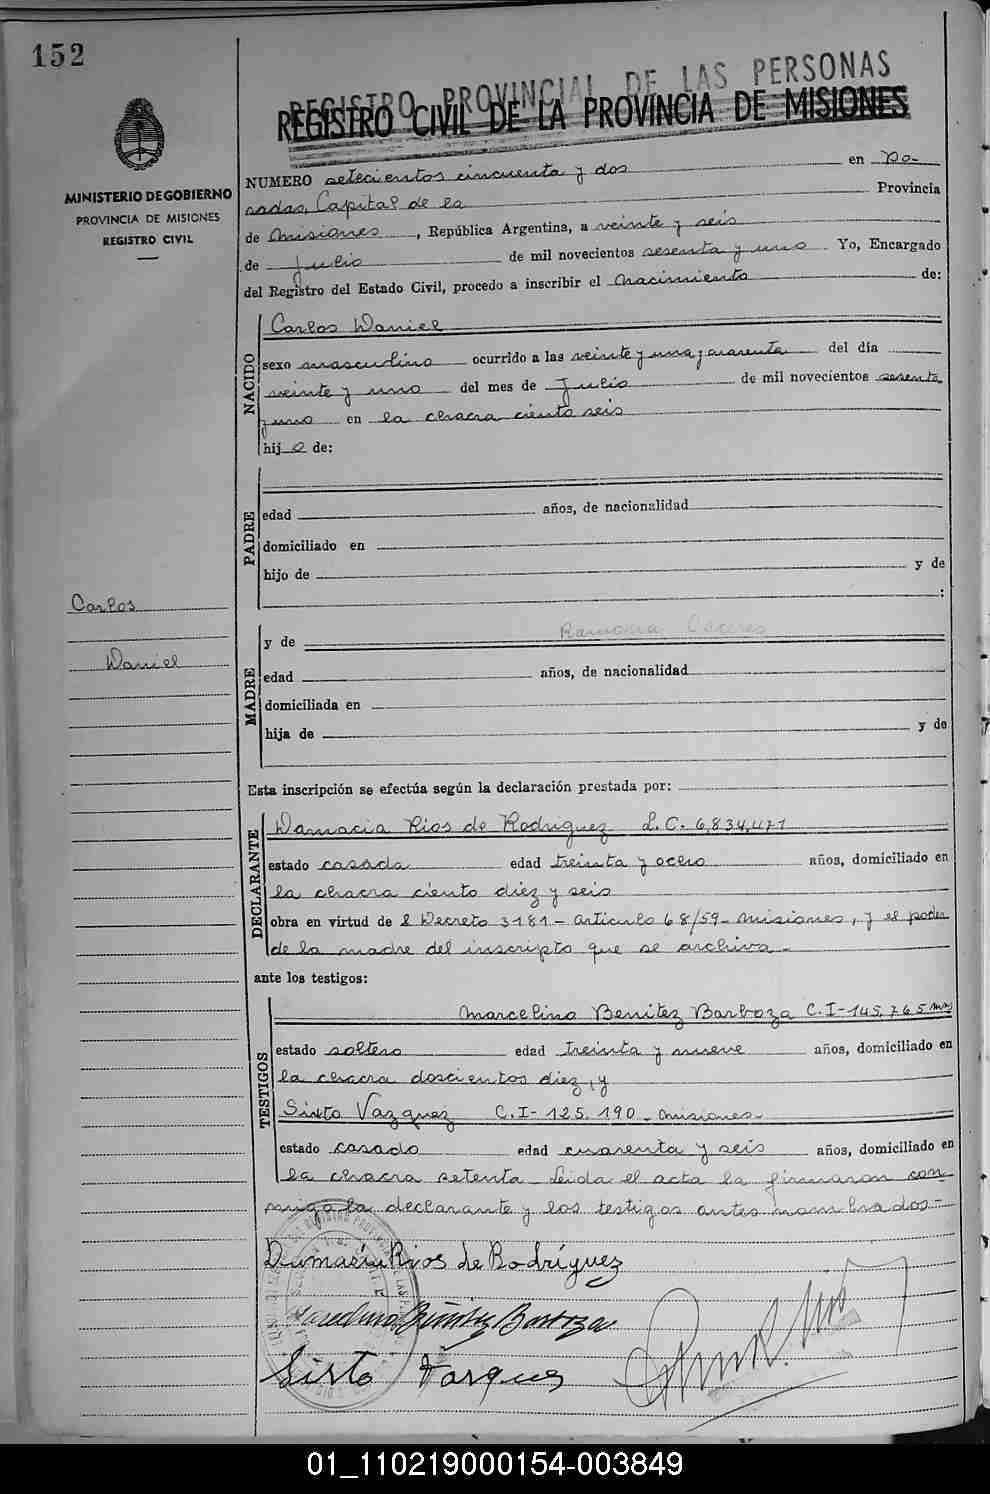 152
MINISTERIO DE GOBIERNO
PROVINCIA DE MISIONES
REGISTRO CIVIL
REGISTRO PROVINCIAL DE LAS PERSONAS
REGISTRO CIVIL DE LA PROVINCIA DE MISIONES
NUMERO setecientos cincuenta y dos en Po-
sadas, Capital de la Provincia
de Misiones, República Argentina, a veinte y seis
de Julio de mil novecientos sesenta y uno Yo, Encargado
del Registro del Estado Civil, procedo a inscribir el Nacimiento de:
NACIDO
Carlos Daniel
sexo masculino ocurrido a las veinte y una y cuarenta del día
veinte y uno del mes de Julio de mil novecientos sesenta
y uno en la chacra ciento seis
hijo de:
PADRE
edad años, de nacionalidad
domiciliado en
hijo de y de
:
Carlos
Daniel
MADRE
y de Ramona Caceres
edad años, de nacionalidad
domiciliada en
hija de y de
Esta inscripción se efectúa según la declaración prestada por:
DECLARANTE
Damacia Rios de Rodriguez L.C. 6,834,471
estado casada edad treinta y ocho años, domiciliado en
la chacra ciento diez y seis
obra en virtud de l Decreto 3181- articulo 68/59- Misiones, y el poder
de la madre del inscripto que se archiva-
ante los testigos:
TESTIGOS
Marcelino Benitez Barboza C.I-145.765
estado soltero edad treinta y nueve años, domiciliado en
la chacra doscientos diez, y
Sixto Vazquez C.I- 125.190- Misiones-
estado casado edad cuarenta y seis años, domiciliado en
la chacra setenta- Leida el acta la firmaron con-
migo la declarante y los testigos antes nombrados-
Damacia Rios de Rodríguez
Marcelino Benitez Barboza
Sixto Vasquez
01_110219000154-003849